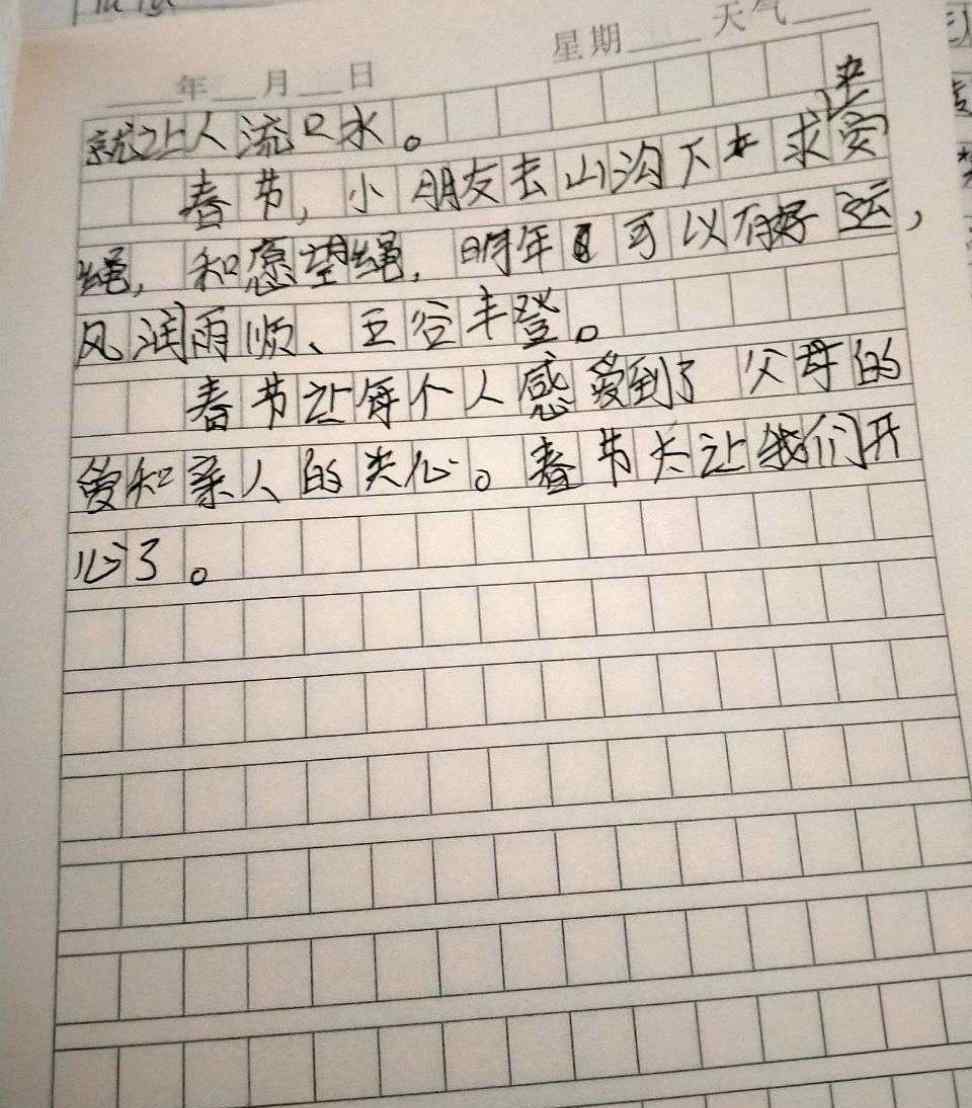 星期 天气
年 月 日
就让人流口水。
春节，小朋友去山沟下 求安
绳，和愿望绳，明年 可以有好运，
风润雨顺、五谷丰登。
春节让每个人感爱到了父母的
爱和亲人的关心。春节太让我们开
心了。